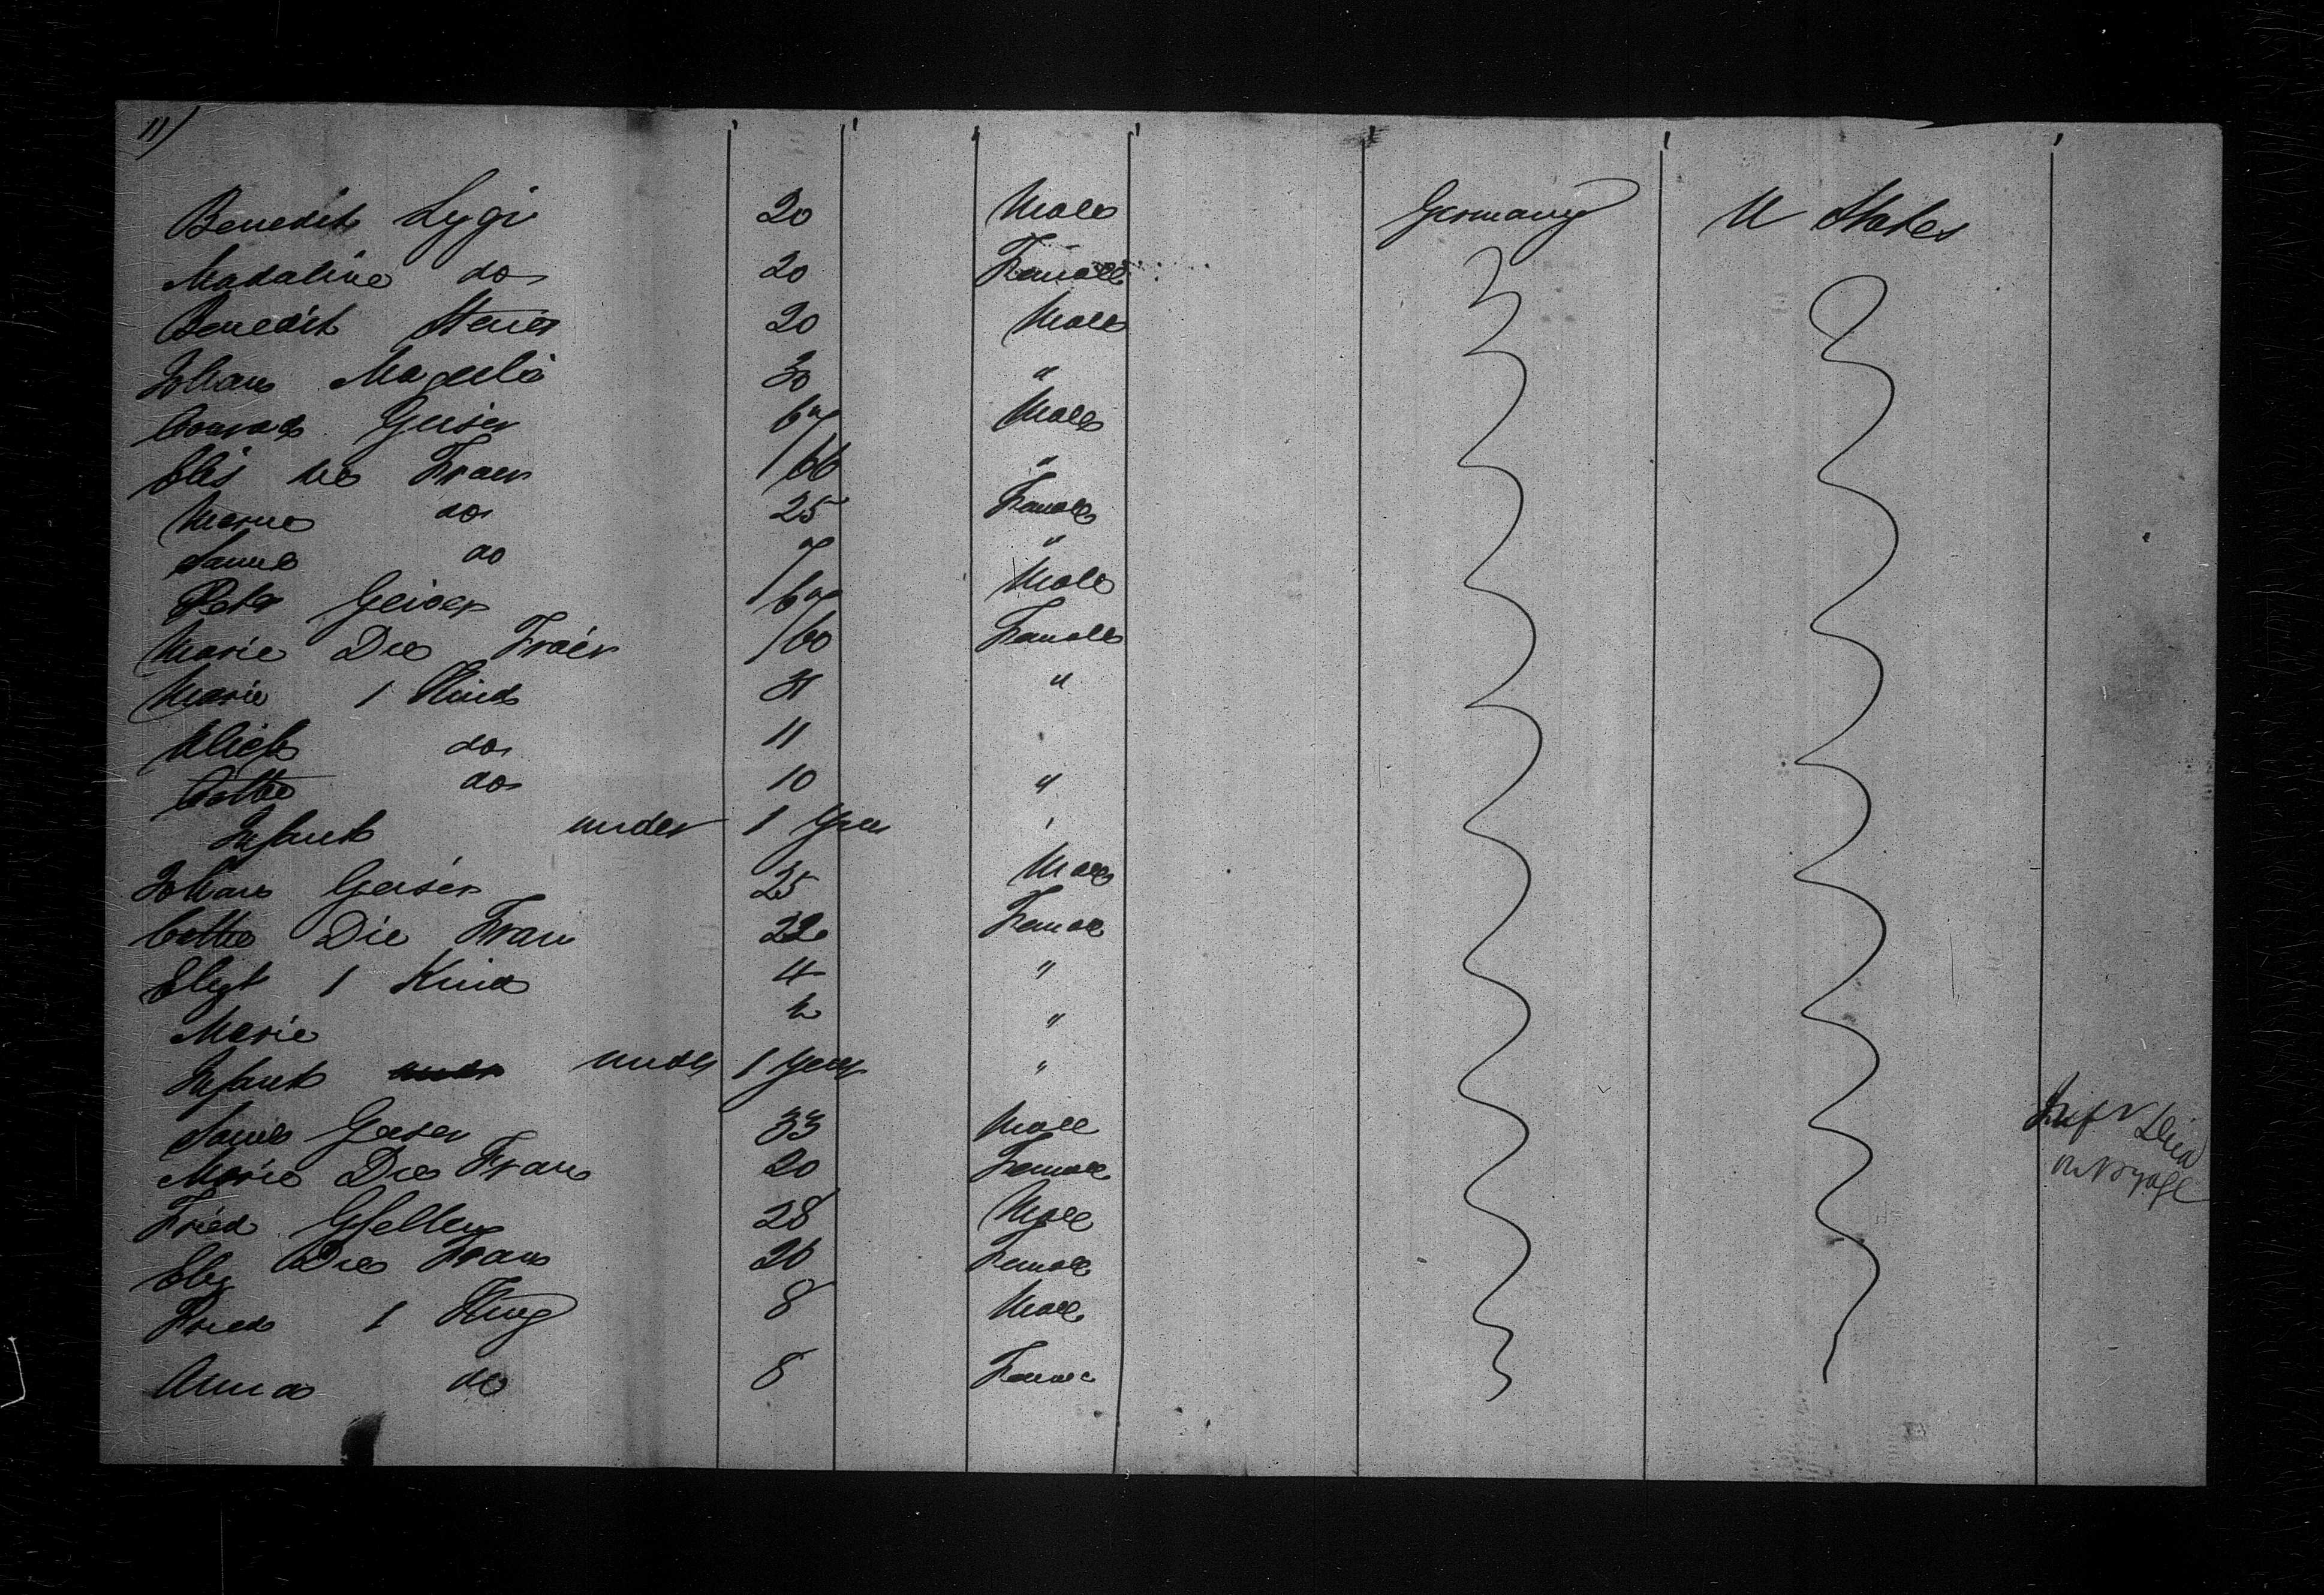 11)
Benedit Lygi 20 Male Germany U States
Madaline do 20 Female
Benedit Steiner 20 Male
Johans 30 "
Conrad Geiser 67 Male
Elis Die Frau 66 "
Marie do 25 Female
Samuel do 7 "
Peter Geiser 67 Male
Marie Die Frau 60 Female
Marie 1 Kind 31 "
Ulich do 11 "
Cette do 10 "
Infant under 1 Year "
Johans Geiser 25 Male
Cette Die Frau 22 Female
Elizt 1 Kind 4 "
Marie 2 "
Infant under 1 Year "
Samuel Geiser 33 Male Infn Died
Marie Die Frau 20 Female on Voyage
Fried Gfeller 28 Male
Eliz Die Frau 26 Female
Fried 1 Kind 8 Male
Anna do 8 Female